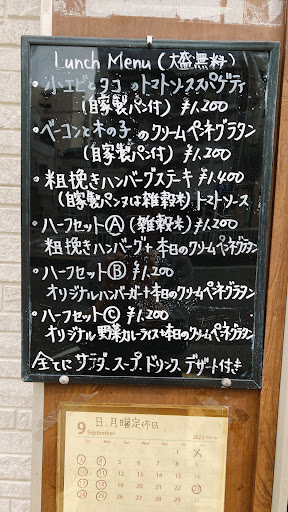 Lunch Menu (大盛無料)
・小エビとタコのトマトソーススパゲティ
(自家製パン付) ¥1.200
・ベーコンと木の子のクリームペンネグラタン
(自家製パン付) ¥1.200
・粗挽きハンバーグステーキ ¥1.400
(自家製パン又は雑穀米) トマトソース
・ハーフセットⒶ (雑穀米) ¥1.200
粗挽きハンバーグ+本日のクリームペンネグラタン
・ハーフセットⒷ ¥1.200
オリジナルハンバーガー+本日のクリームペンネグラタン
・ハーフセットⒸ ¥1.200
オリジナル野菜カレーライス+本日のクリームペンネグラタン
全てに サラダ、スープ、ドリンク、デザート付き
日、月曜定休日
9
September
2023